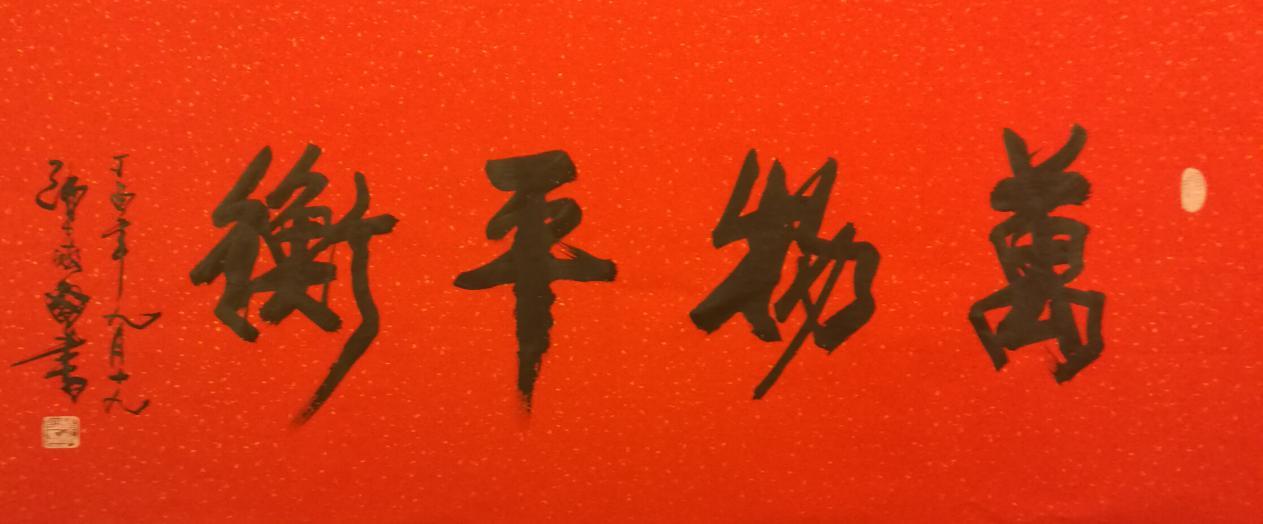 萬物平衡
丁酉年九月十九
書